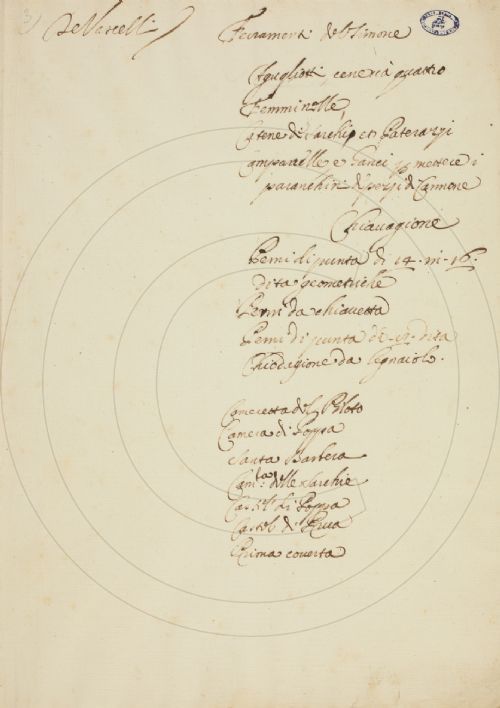 3)
De Vascelli
Ferramenti del Timone
Agugliotti, cenerca quattro
Femminelle,
Catene di sarchie et Paterazzi
Campanelle e Ganci p mettere i
paranchini di pezzi di Cannone
Chiavagione
Perni di punta di 14. in. 16.
dita geometriche
Perni da chiavetta
Perni di punta di 12. dita
Chiodagione da legnaiolo.
Cameretta del Piloto
Camera di Poppa
Santa Barbera
Cam.ta delle sarchie
di Poppa
di Prua
Prima coverta